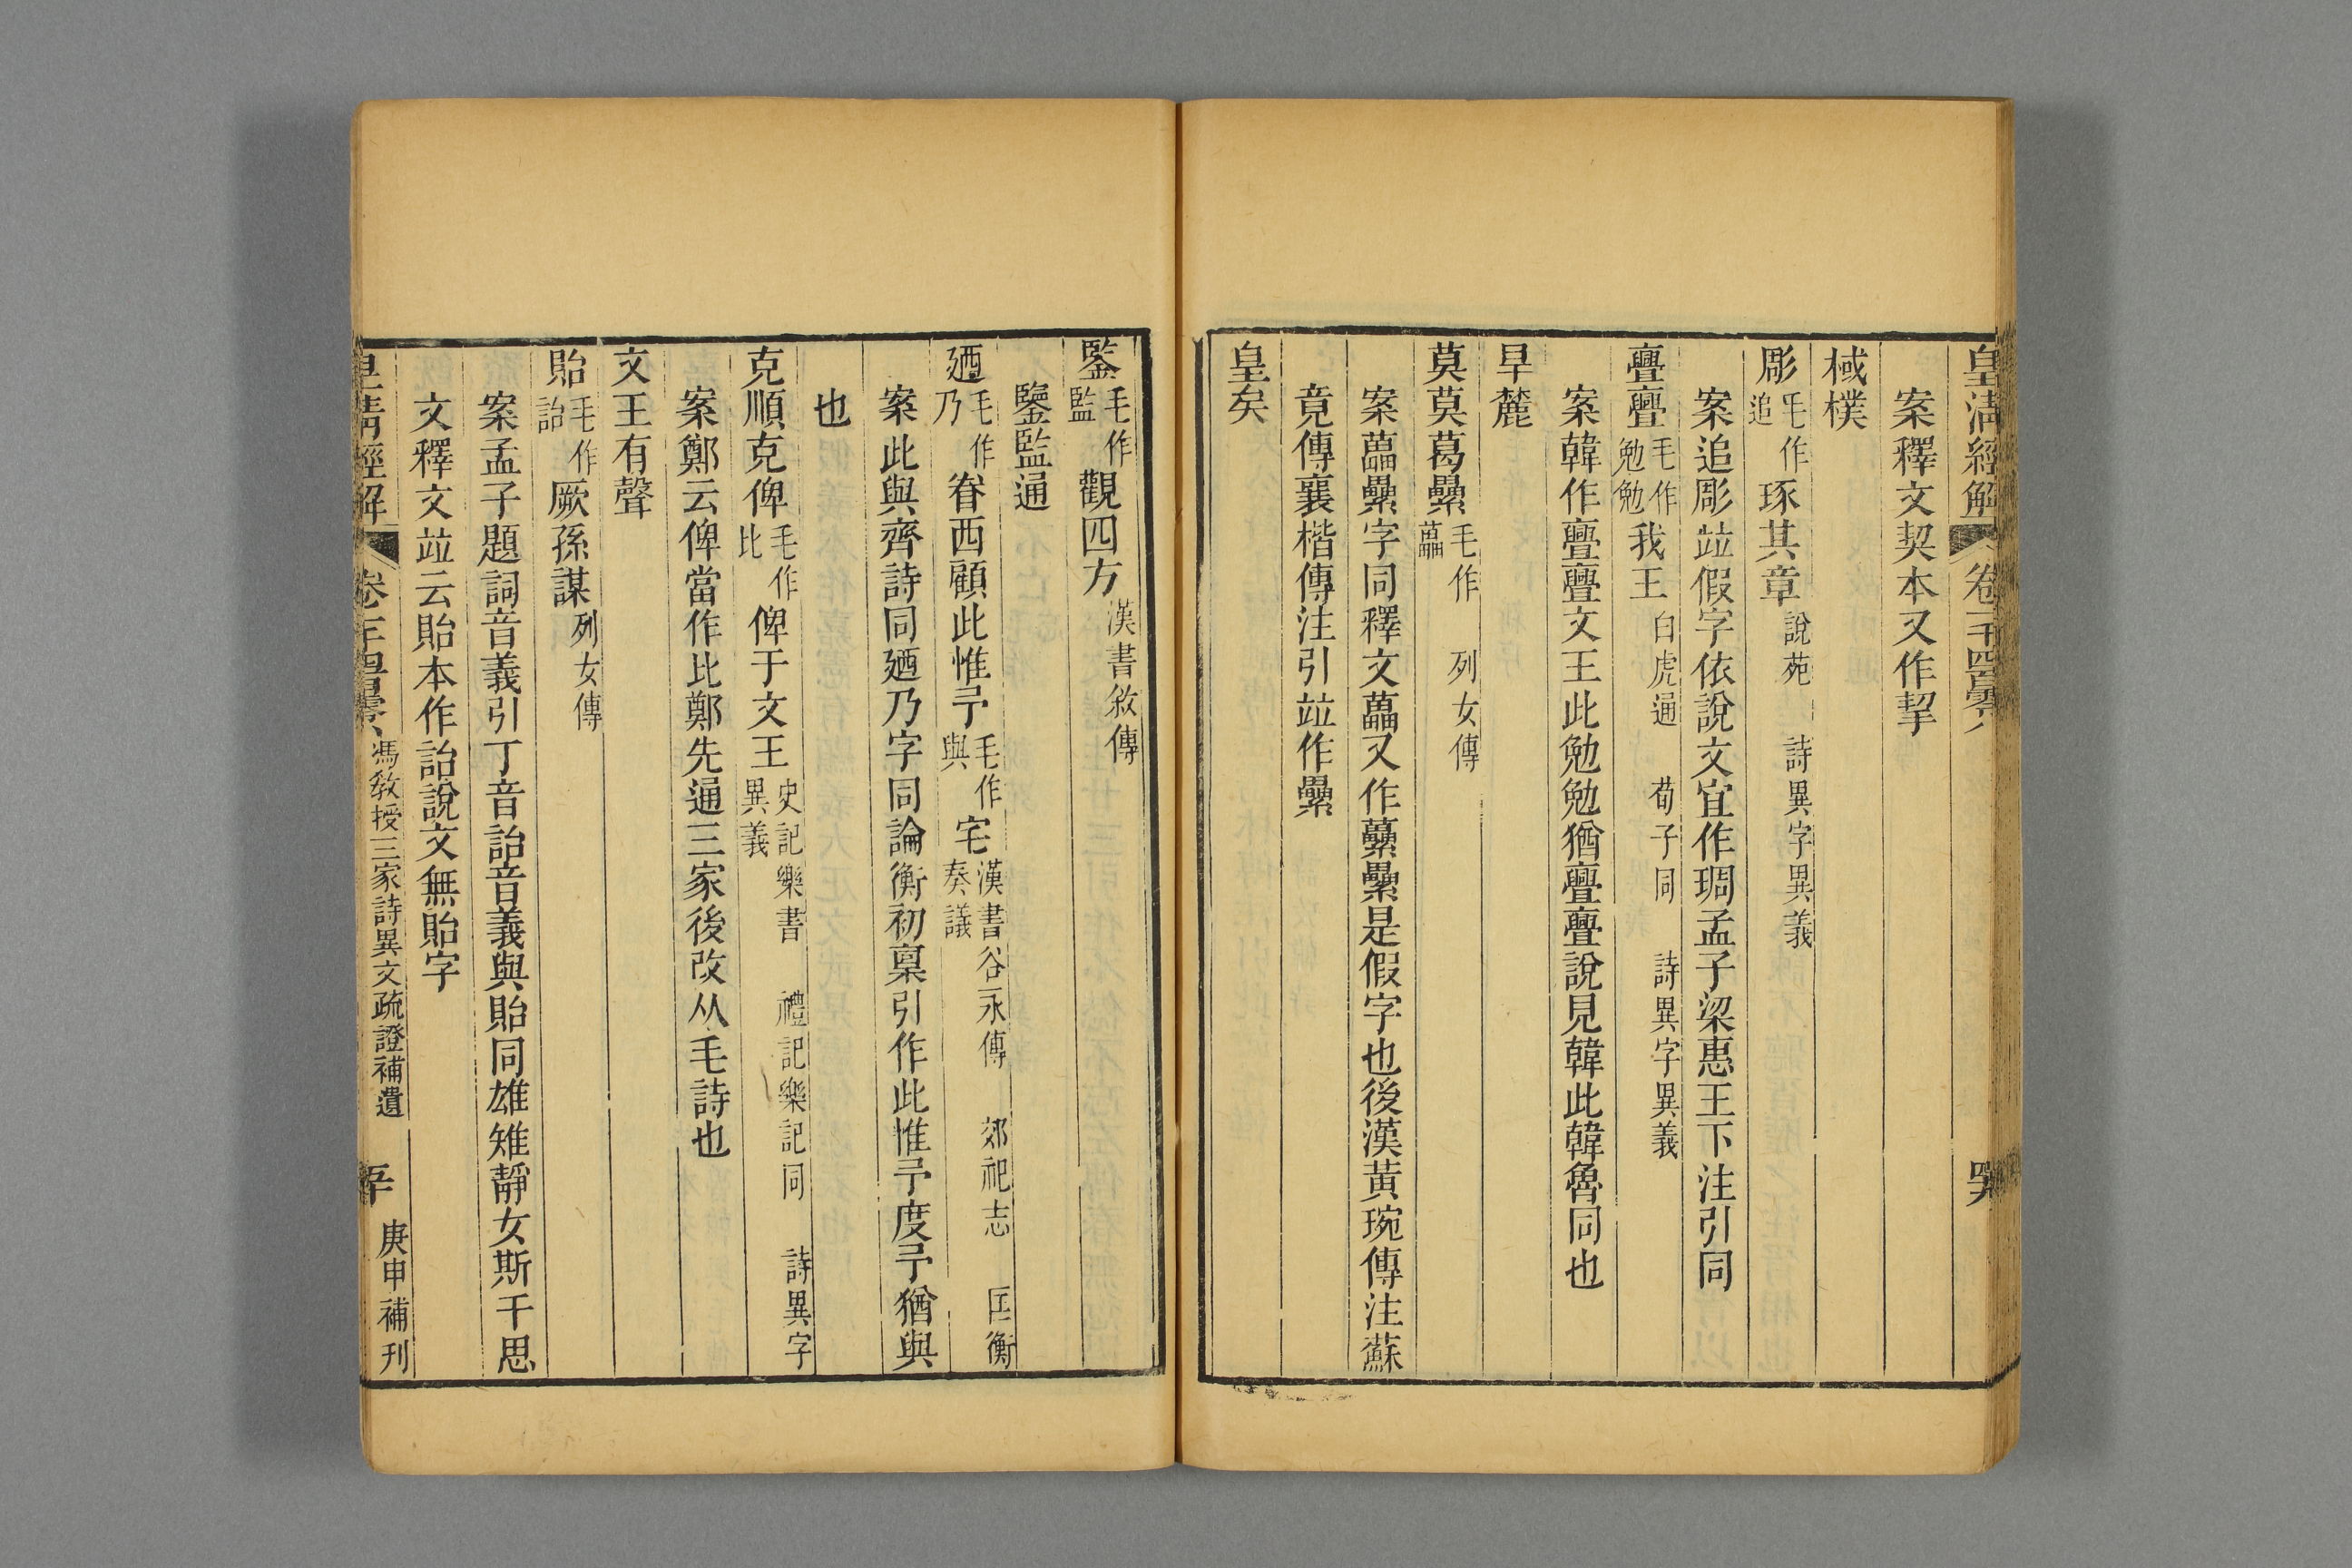 皇清經解 卷一千四百零八 四九
案釋文契本又作挈
棫樸
彫毛作追琢其章說苑 詩異字異義
案追彫竝假字依說文宜作琱孟子梁惠王下注引同
亹亹毛作勉勉我王白虎通 荀子同 詩異字異義
案韓作亹亹文王此勉勉猶亹亹說見韓此韓魯同也
旱麓
莫莫葛纍毛作藟列女傳
案藟纍字同釋文藟又作虆纍是假字也後漢黃琬傳注蘇
竟傳襄楷傳注引竝作纍
皇矣
鍳毛作監觀四方漢書敘傳
鑒監通
廼毛作乃眷西顧此惟予毛作與宅漢書谷永傳 郊祀志 匡衡奏議
案此與齊詩同廼乃字同論衡初稟引作此惟予度予猶與
也
克順克俾毛作比俾于文王史記樂書 禮記樂記同 詩異字異義
案鄭云俾當作比鄭先通三家後改从毛詩也
文王有聲
貽毛作詒厥孫謀列女傳
案孟子題詞音義引丁音詒音義與貽同雄雉靜女斯干思
文釋文竝云貽本作詒說文無貽字
皇清經解 卷一千四百零八 馮敎授三家詩異文疏證補遺 五十 庚申補刊